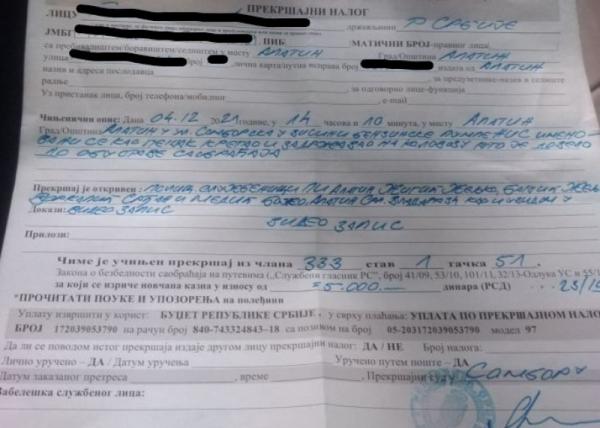 ЛИЦУ ПРЕКРШАЈНИ НАЛОГ
ЈМБГ држављанин Р СРБИЈЕ
ПИБ МАТИЧНИ БРОЈ-правног лица
са пребивалиштем/боравиштем/седиштем у месту АПАТИН Град/Општина АПАТИН
улица број лична карта/путна исправа број издата од АПАТИН
назив и адреса послодавца за предузетнике-назив и седиште
радње за одговорно лице-функција
Уз пристанак лица, број телефона/мобилног , e-mail
Чињенични опис: Дана 04.12 2021 године, у 14 часова и 10 минута, у месту АПАТИН
Град/Општина АПАТИН У УЛ. СОМБОРСКА У ВИСИНИ БЕНЗИНСКЕ ПУМПЕ НИС ИМЕНО-
ВАНИ СЕ КАО ПЕШАК КРЕТАО И ЗАДРЖАВАО НА КОЛОВОЗУ ШТО ЈЕ ДОВЕЛО
ДО ОБУСТАВЕ САОБРАЋАЈА
Прекршај је откривен: ПОЛИЦ. СЛУЖБЕНИЦИ ПИ АПАТИН
Докази: ВИДЕО ЗАПИС
ВИДЕО ЗАПИС
Прилози:
Чиме је учињен прекршај из члана 333 став 1 тачка 51.
Закона о безбедности саобраћаја на путевима („Службени гласник РС”, број 41/09, 53/10, 101/11, 32/13-Одлука УС и 55/1
за који се изриче новчана казна у износу од =5.000.— динара (РСД)
*ПРОЧИТАТИ ПОУКЕ И УПОЗОРЕЊА на полеђини
Уплату извршити у корист: БУЏЕТ РЕПУБЛИКЕ СРБИЈЕ, у сврху плаћања: УПЛАТА ПО ПРЕКРШАЈНОМ НАЛО
БРОЈ 172039053790 на рачун број 840-743324843-18 са позивом на број 05-203172039053790 модел 97
Да ли се поводом истог прекршаја издаје другом лицу прекршајни налог: ДА / НЕ Број налога:
Лично уручено – ДА / Датум уручења Уручено путем поште – ДА
Датум заказаног претреса , време , Прекршајни суд у СОМБОРУ
Забелешка службеног лица: